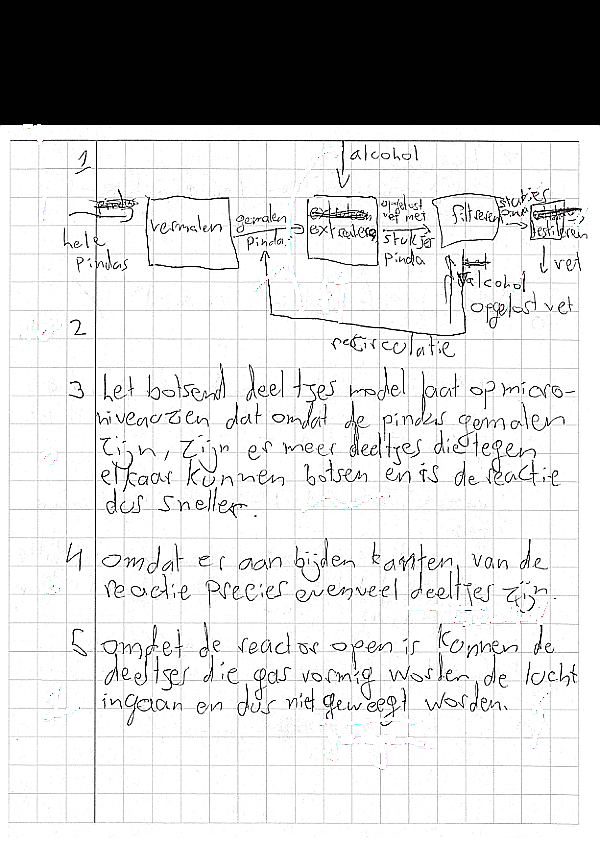 1
alcohol
hele
Pindas
vermalen
gemalen
Pinda
opgelost
vet met
stukjes
Pinda
filtreren
vet
alcohol
opgelost vet
recirculatie
2
3 het botsend deeltjes model laat op micro-
niveau zien dat omdat de pindas gemalen
zijn, zijn er meer deeltjes die tegen
elkaar kunnen botsen en is de reactie
dus sneller.
4 omdat er aan bijden kanten, van de
reactie Precies evenveel deeltjes zijn.
5 omdet de reactor open is konnen de
deeltjes die gas vormig worden de lucht
ingaan en dus niet geweegt worden.